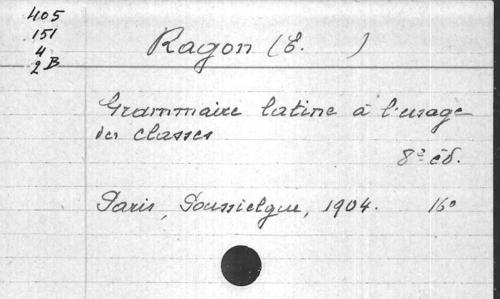 405
151
4
2B
Ragon (E. )
Grammaire latine à l'usage
des classes
8e éd.
Paris, Poussielgue, 1904. 16o